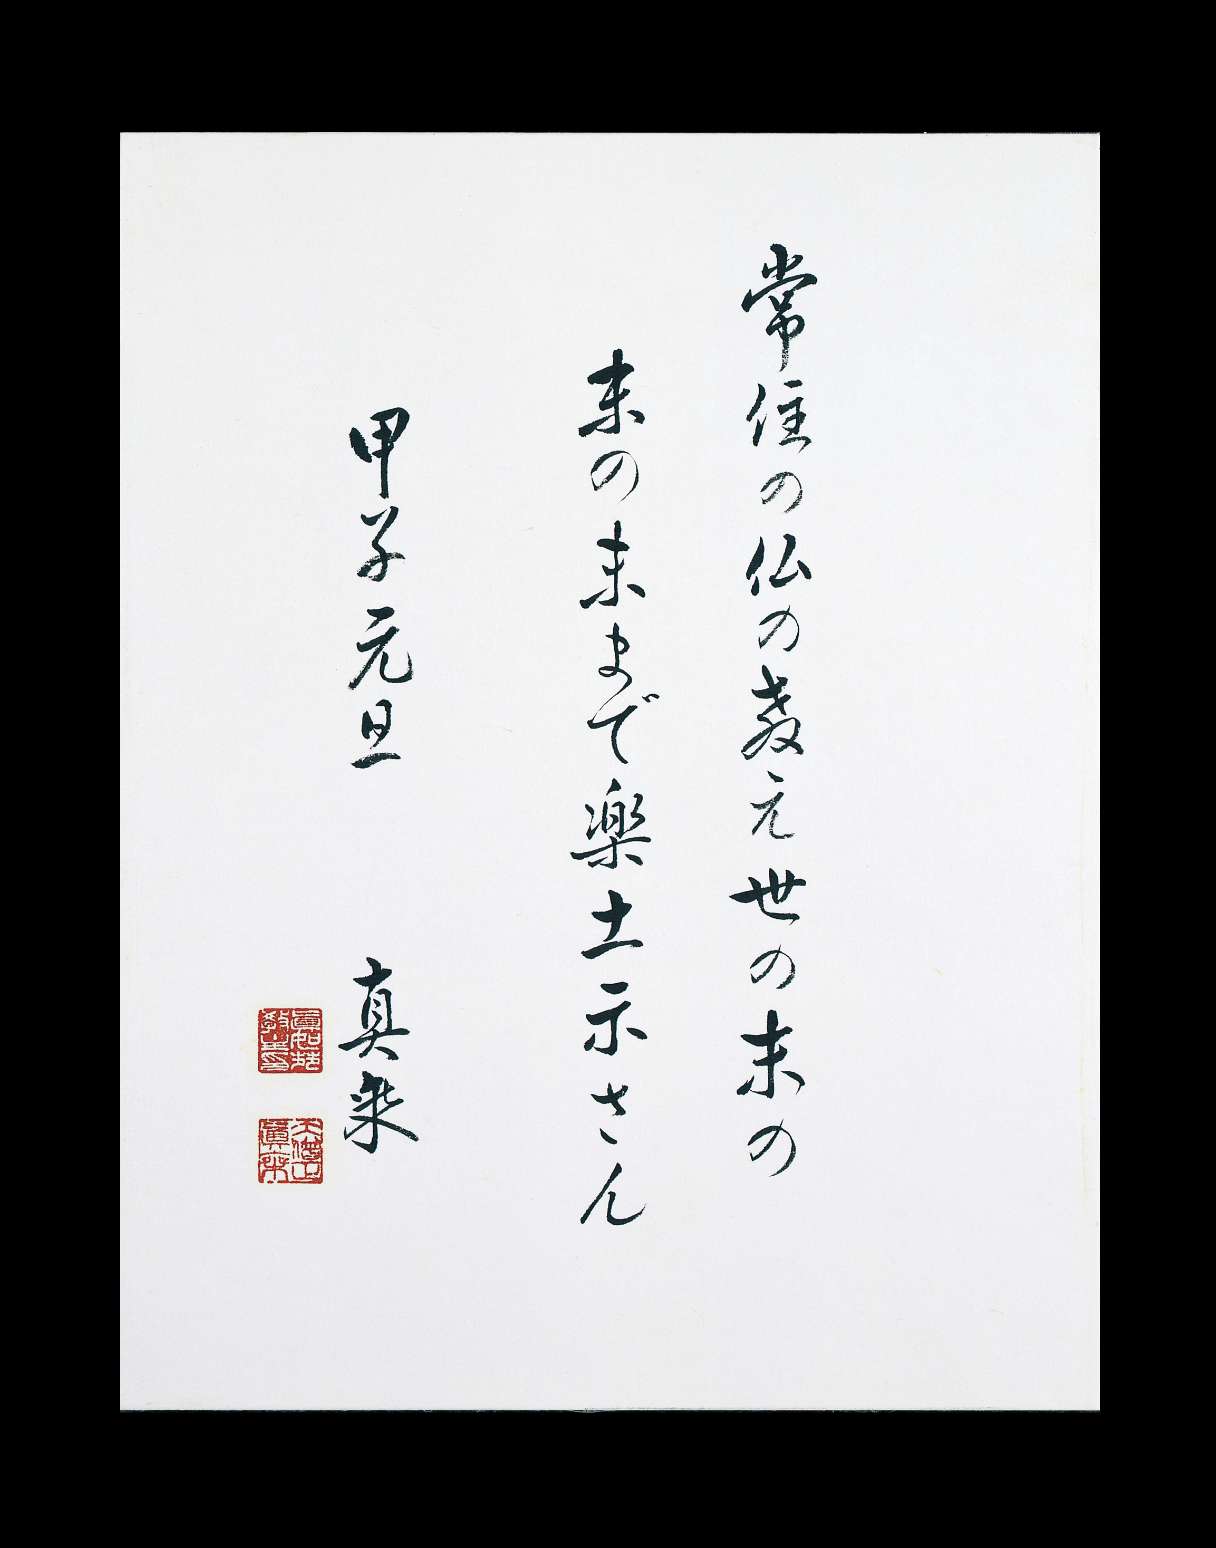 常住の仏の教え世の末の
末の末まで楽土示さん
甲子元旦
真乗